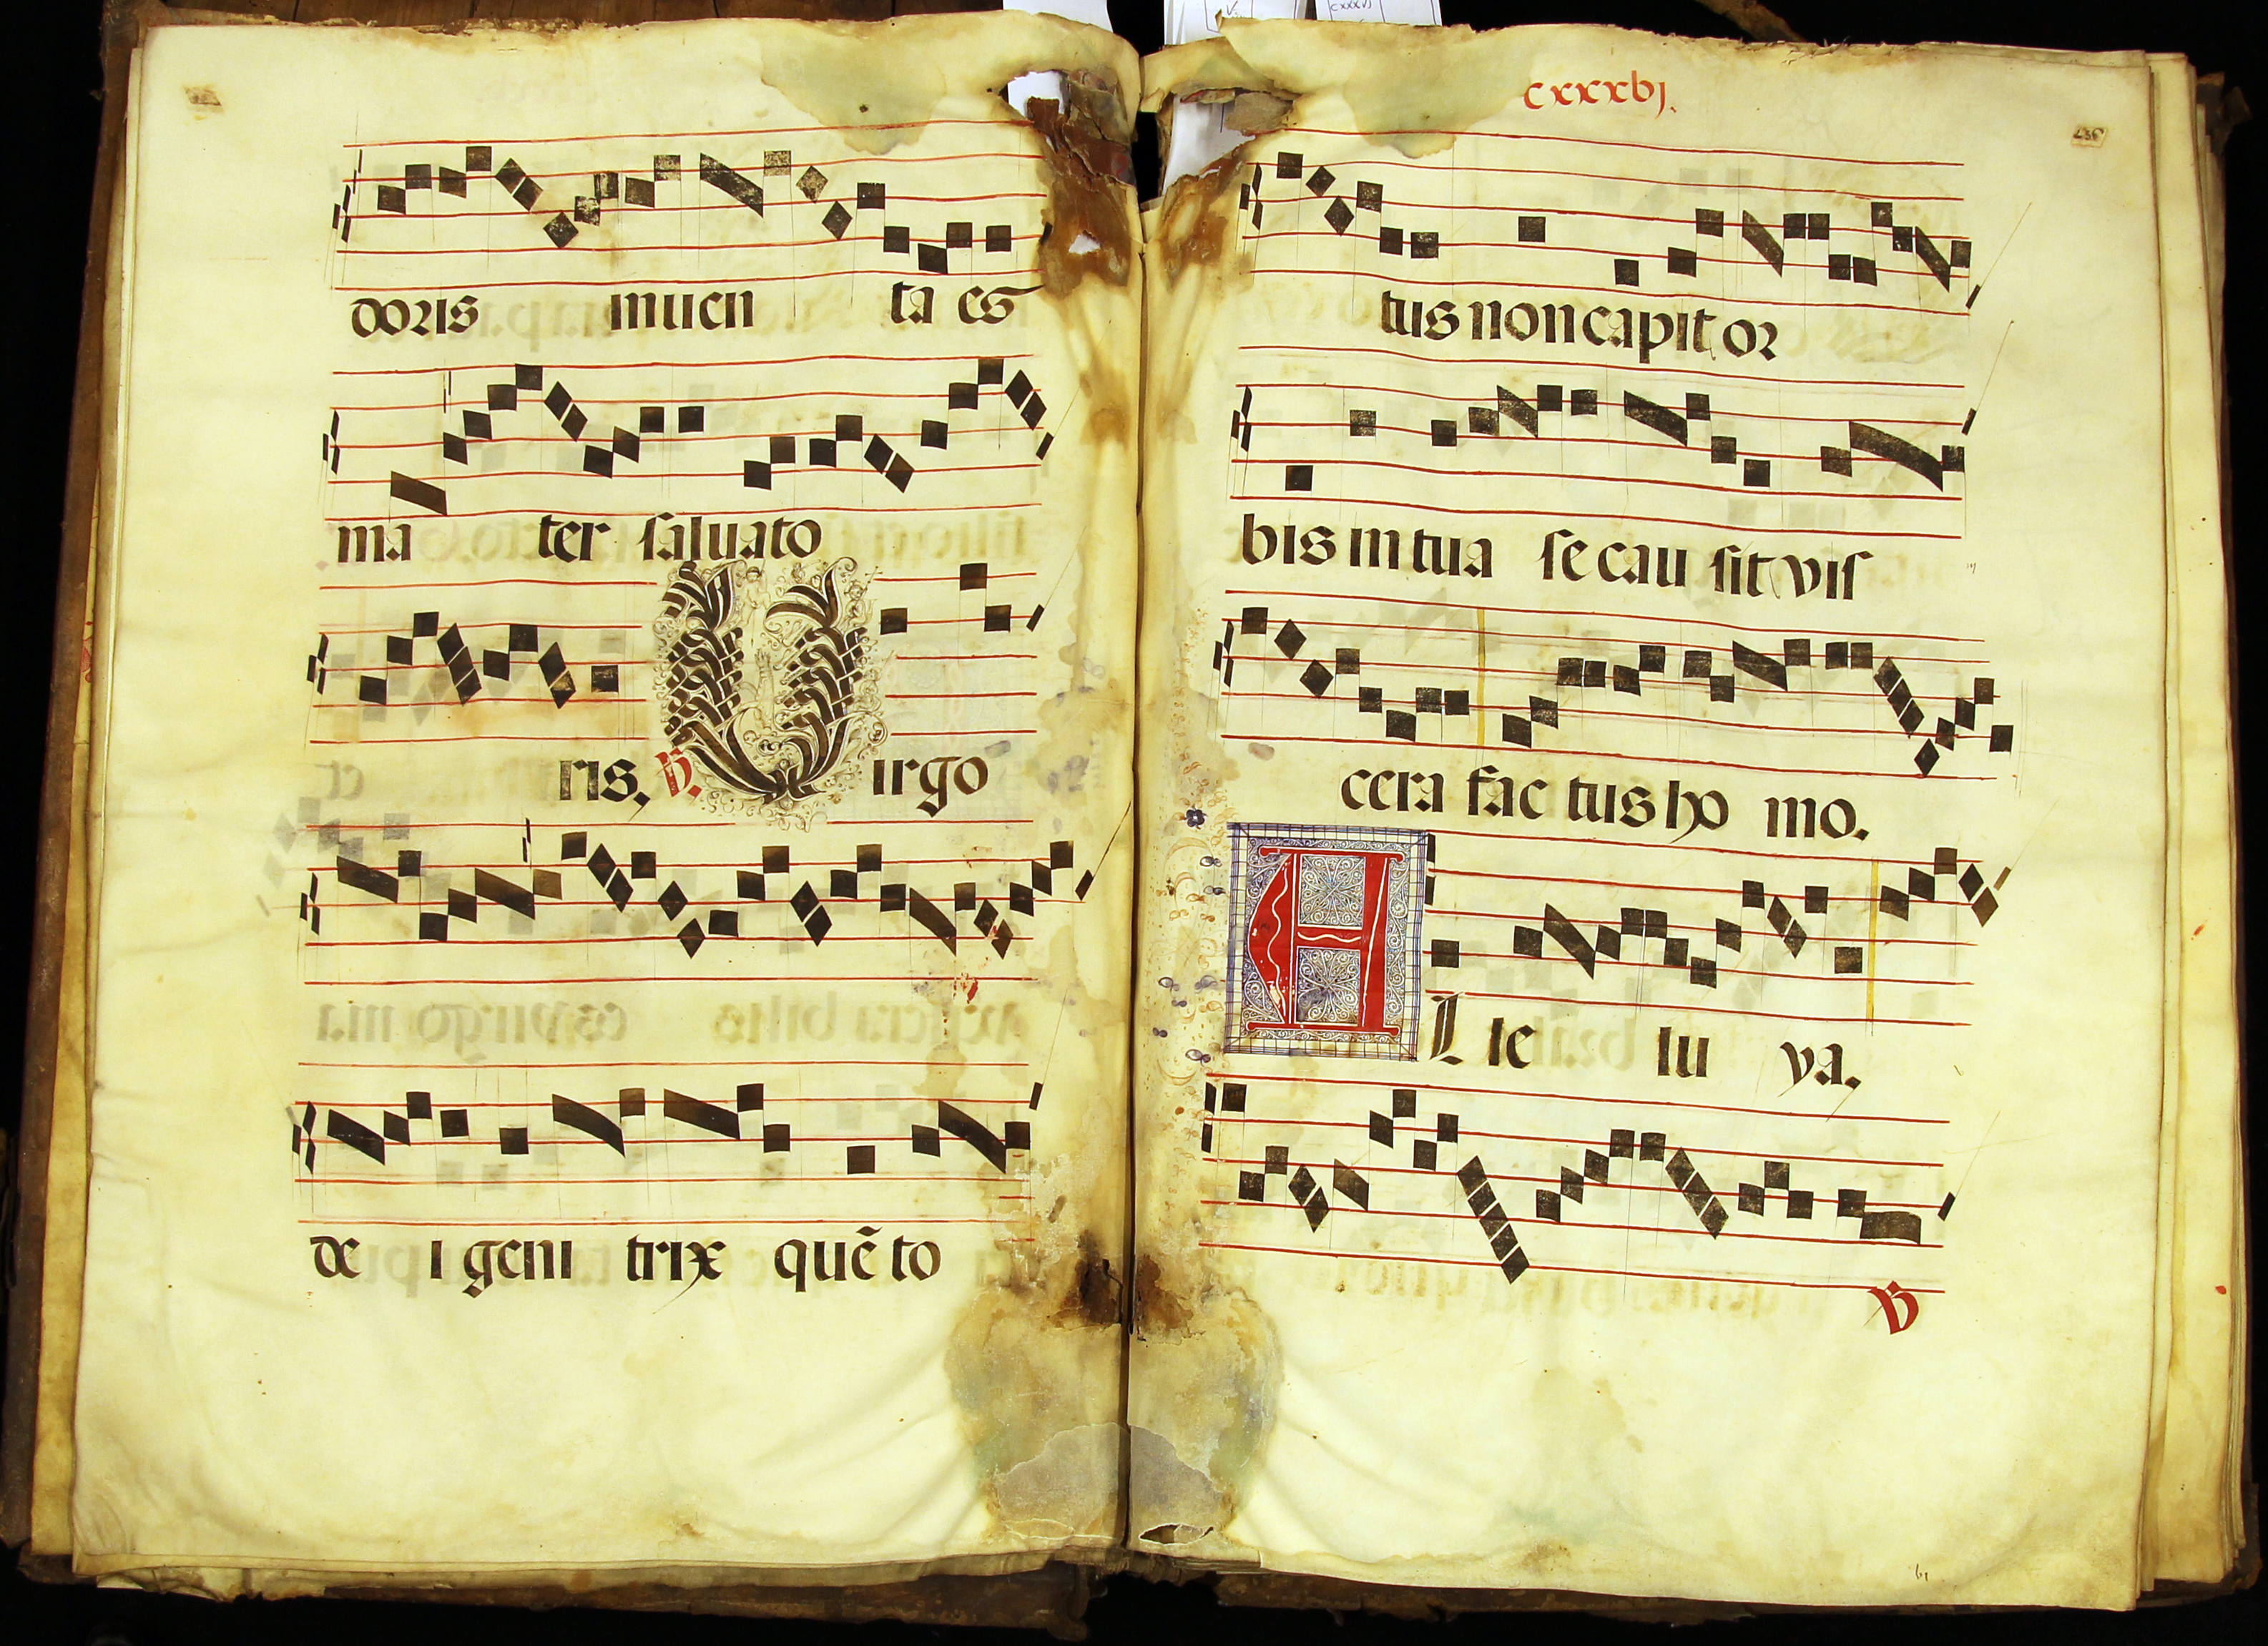 doris inuen ta es
ma ter saluato
ris. ℣. Virgo
de i geni trix quẽ to
cxxxvj.
tus non capit or
bis in tua se clau sit vis
cera fac tus ho mo.
A L le lu ya.
℣